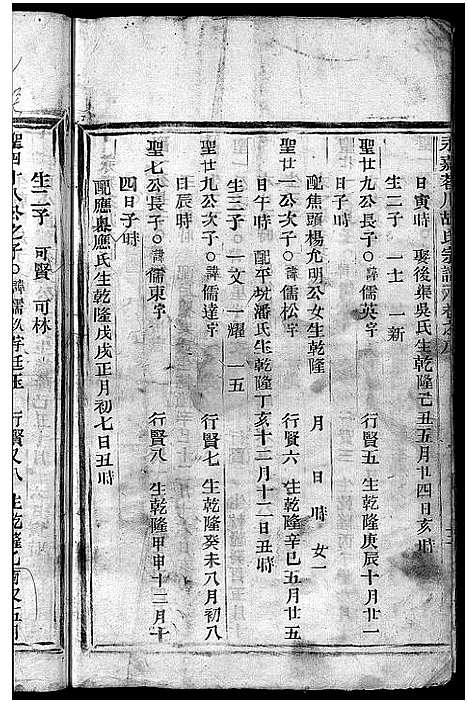 永嘉蓉川胡氏宗譜
聖廿九公長子○諱儒英字　行賢五　生乾隆庚辰十月廿一
日寅時　娶後渠吳氏生乾隆己丑五月廿四日亥時
生二子　一士　一新
聖廿一公次子○諱儒松字　行賢六　生乾隆辛巳五月廿五
日子時　配焦頭楊允明公女生乾隆　月　日時　女一
聖廿九公次子○諱儒達字　行賢七　生乾隆癸未八月初八
日午時　配平坑潘氏生乾隆丁亥十二月十二日丑時
生三子　一文　一耀　一五
聖七公長子○諱儒東字　行賢八　生乾隆甲申十二月十
日辰時
四日子時　配應嶴應氏生乾隆戊戌正月初七日丑時
生二子　可賢　可林
聖四十八公之子○諱儒　字廷玉　行賢又八　生乾隆乙酉又二月